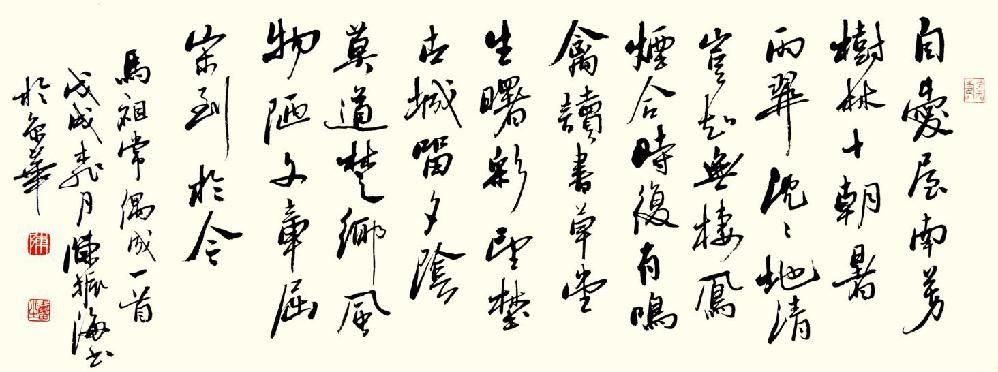 自愛屋南芳
樹林十朝暑
雨翠沈〻地清
豈知無棲鳳
煙合時復有鳴
禽讀書草堂
生曙彩望楚
古城留夕陰
莫道楚鄉風
物陋文章屈
宋到於今
馬祖常偶成一首
戊戌月陳振海書
於京華